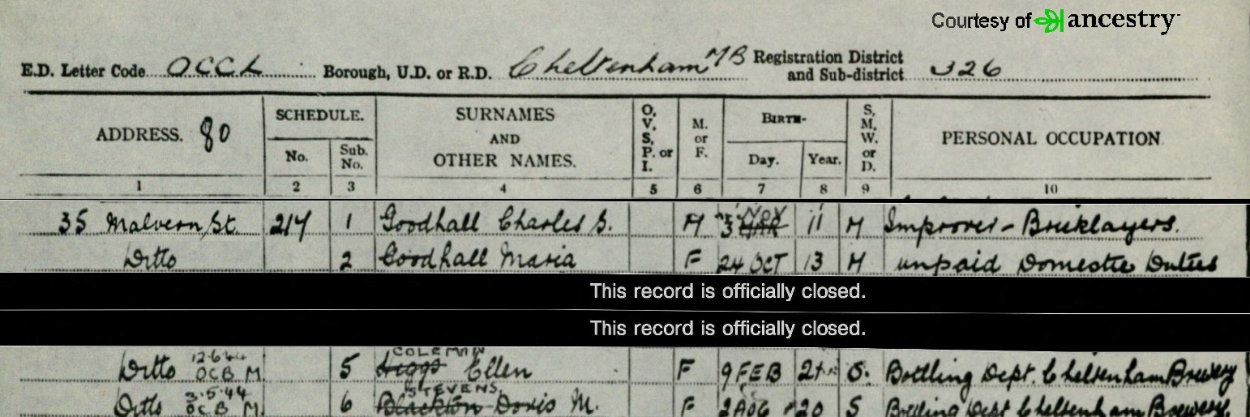 Courtesy of ancestry
E.D. Letter Code OCCL Borough, U.D. or R.D. Cheltenham MB Registration District and Sub-district 326
ADDRESS. 80 SCHEDULE. No. Sub. No. SURNAMES AND OTHER NAMES. O, V, S, P. or I. M. or F. BIRTH- Day. Year. S, M, W. or D. PERSONAL OCCUPATION
1 2 3 4 5 6 7 8 9 10
35 Malvern St. 217 1 Goodhall Charles S. M 3 NOV 11 M Improver - Bricklayers.
Ditto 2 Goodhall Maria F 24 OCT 13 M unpaid Domestic Duties
This record is officially closed.
This record is officially closed.
COLEMAN
Ditto OCB M 5 Higgs Ellen F 9 FEB 21 S. Bottling Dept. Cheltenham Brewery
STEVENS
Ditto 3.5.44 OCB M 6 Doris M. F 2 AUG 20 S Bottling Dept Cheltenham Brewery